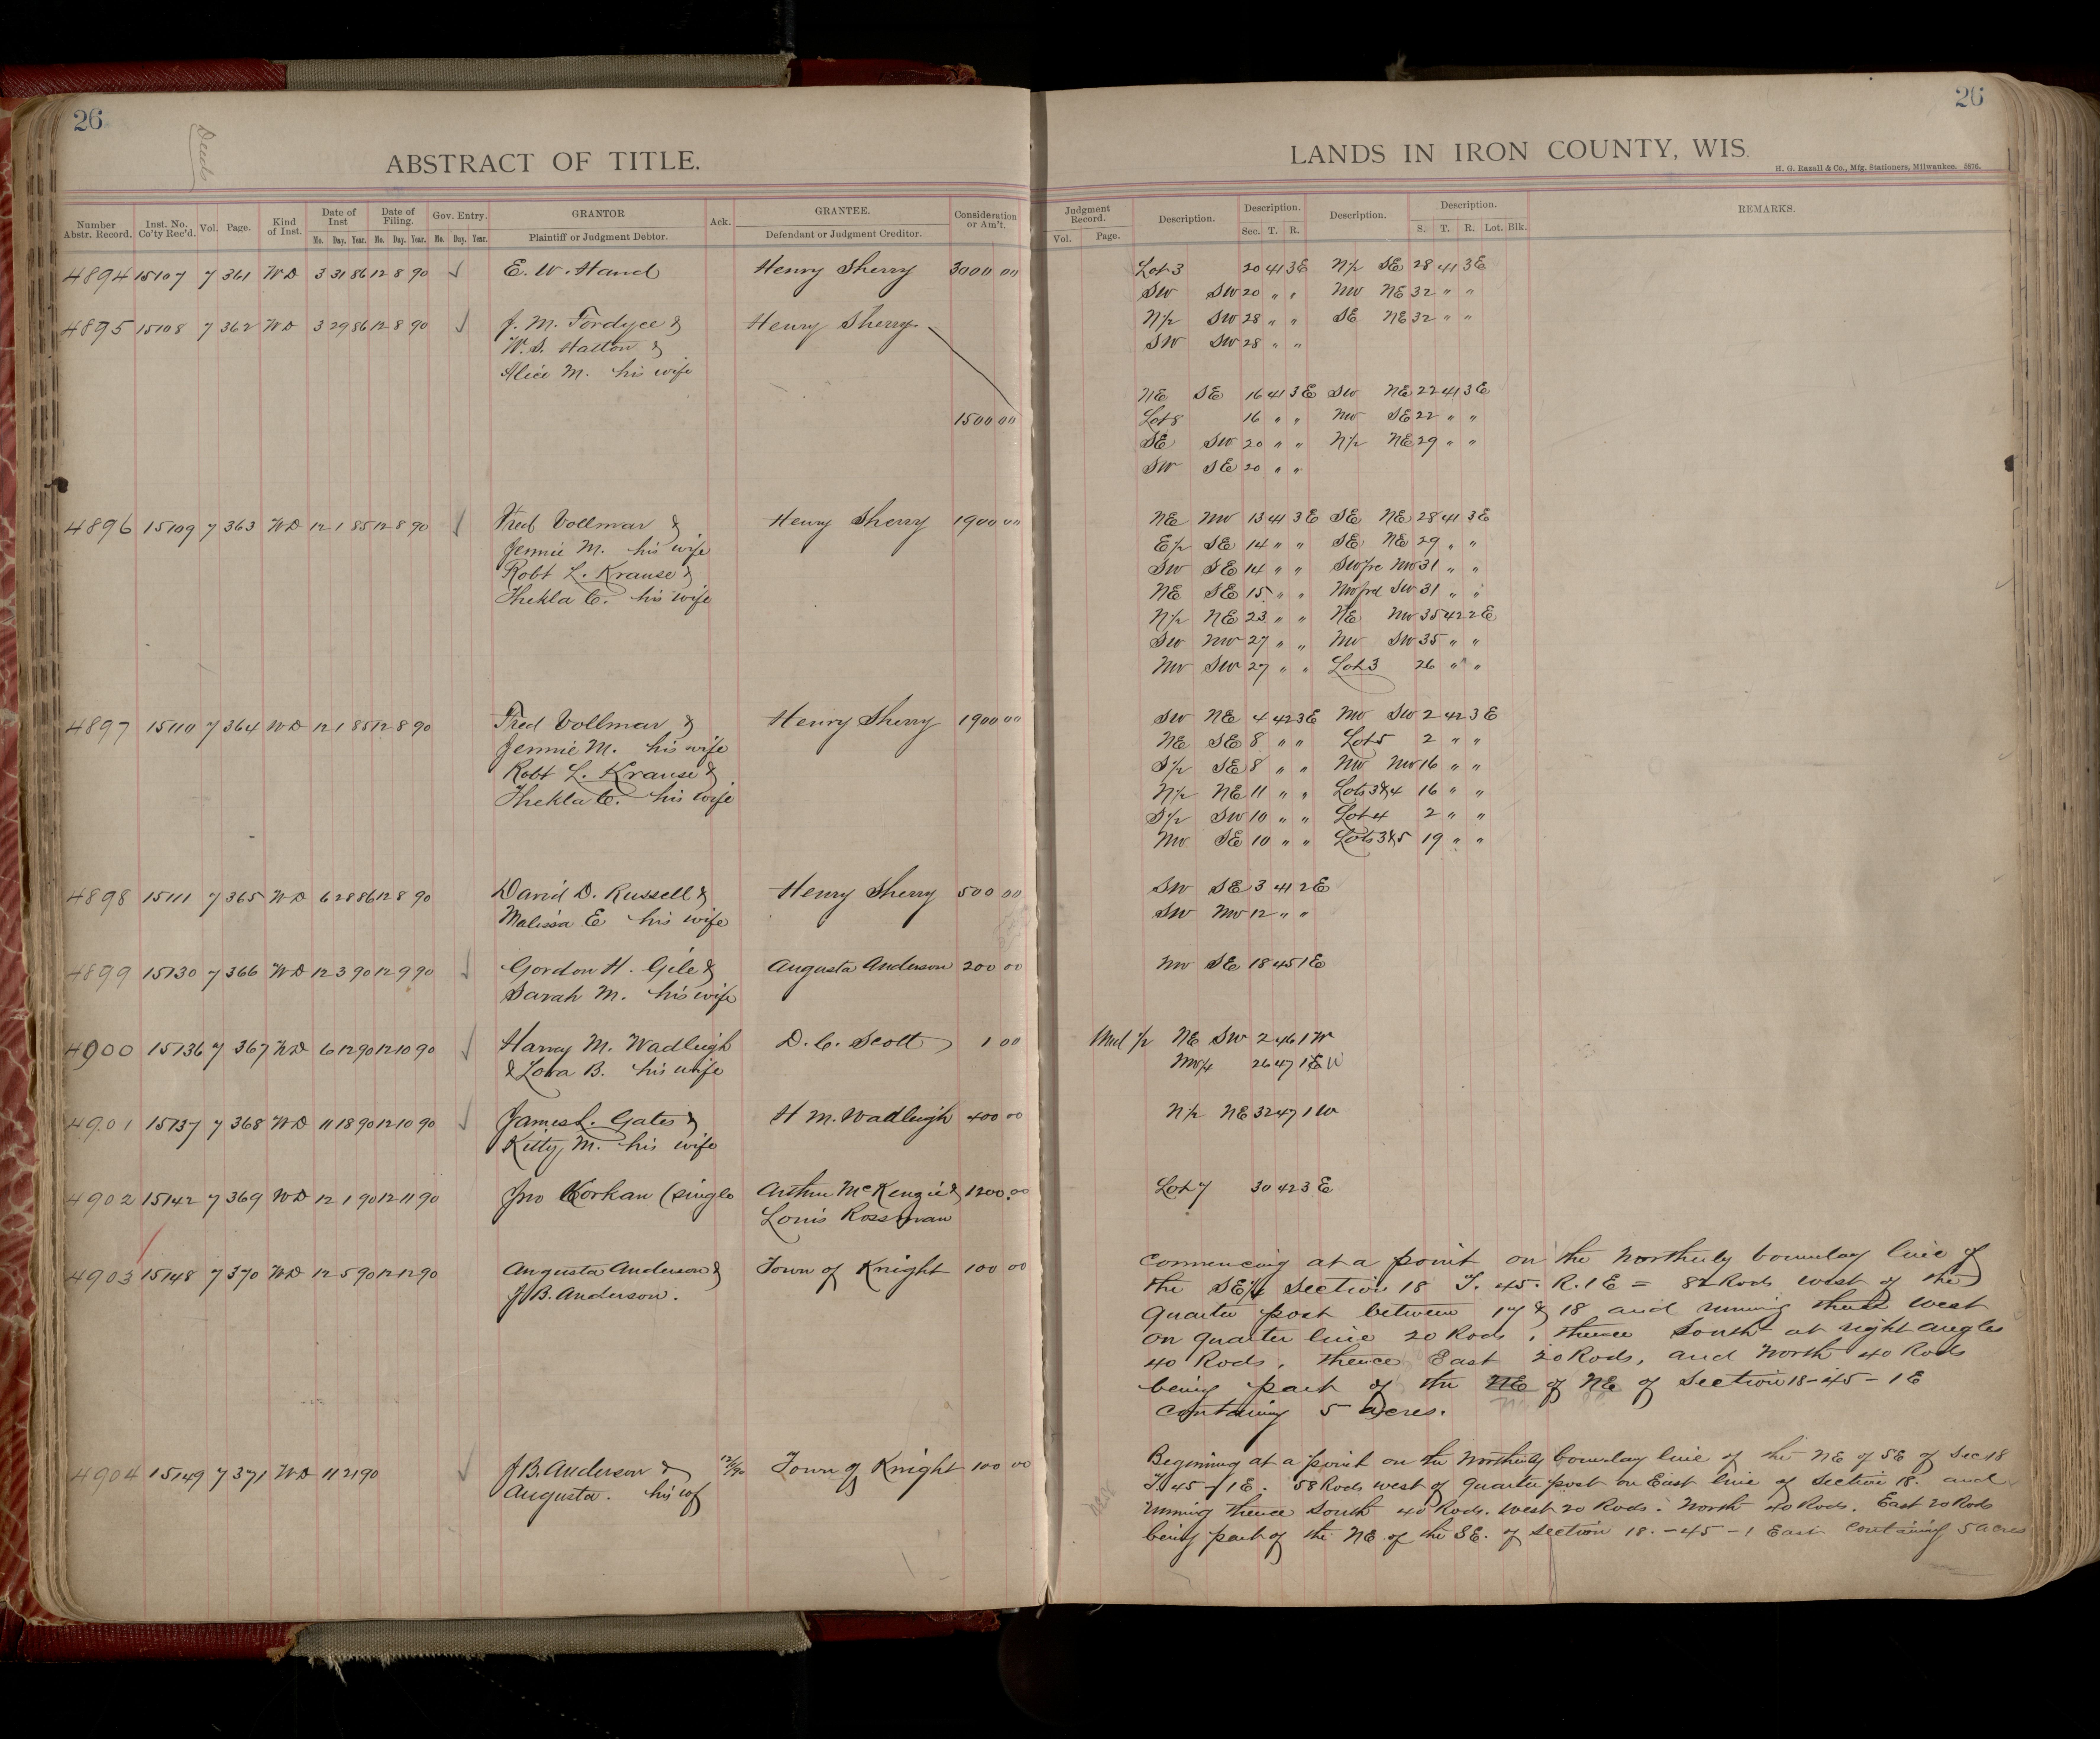 26
Deeds
ABSTRACT OF TITLE.
Number Abstr. Record. Inst. No. Co'ty Rec'd. Vol. Page. Kind of Inst. Date of Inst Mo. Day. Year. Date of Filing. Mo. Day. Year. Gov. Entry. Mo. Day. Year. GRANTOR Plaintiff or Judgment Debtor. Ack. GRANTEE. Defendant or Judgment Creditor. Consideration or Am't.
4894 15107 7 361 WD 3 31 86 12 8 90 √ E. W. Hand Henry Sherry 3000 00
4895 15108 7 362 WD 3 29 86 12 8 90 √ J. M. Fordyce & Henry Sherry
W. S. Hatton &
Alice M. his wife
1500 00
4896 15109 7 363 WD 12 1 85 12 8 90 √ Fred Vollmar & Henry Sherry 1900 00
Jennie M. his wife
Robt L. Krause &
Thekla C. his wife
4897 15110 7 364 WD 12 1 85 12 8 90 Fred Vollmar & Henry Sherry 1900 00
Jennie M. his wife
Robt L. Krause &
Thekla C. his wife
4898 15111 7 365 WD 6 28 86 12 8 90 David D. Russell & Henry Sherry 500 00
Malissa E his wife
4899 15130 7 366 WD 12 3 90 12 9 90 √ Gordon H. Gile & Augusta Anderson 200 00
Sarah M. his wife
4900 15136 7 367 WD 6 12 90 12 10 90 √ Harry M. Wadleigh D. C. Scott 1 00
& Lora B. his wife
4901 15137 7 368 WD 11 18 90 12 10 90 √ James L. Gates & H M. Wadleigh 400 00
Kitty M. his wife
4902 15142 7 369 WD 12 1 90 12 11 90 Jno Korkan (single Arthur McKenzie & 1200.00
Louis Rossman
4903 15148 7 370 WD 12 5 90 12 12 90 Augusta Anderson & Town of Knight 100 00
J B. Anderson.
4904 15149 7 371 WD 11 21 90 √ J B. Anderson & 12/12/90 Town of Knight 100 00
Augusta. his wf
26
LANDS IN IRON COUNTY, WIS.
H. G. Razall & Co., Mfg. Stationers, Milwaukee. 5876.
Judgment Record. Vol. Page. Description. Description. Sec. T. R. Description. Description. S. T. R. Lot. Blk. REMARKS.
Lot 3 20 41 3E N½ SE 28 41 3E
SW SW 20 " " NW NE 32 " "
N½ SW 28 " " SE NE 32 " "
SW SW 28 " "
NE SE 16 41 3E SW NE 22 41 3E
Lot 8 16 " " NW SE 22 " "
SE SW 20 " " N½ NE 29 " "
SW SE 20 " "
NE NW 13 41 3E SE NE 28 41 3E
E½ SE 14 " " SE NE 29 " "
SW SE 14 " " SW frc NW 31 " "
NE SE 15 " " NW frl SW 31 " "
N½ NE 23 " " NE NW 35 42 2E
SW NW 27 " " NW SW 35 " "
NW SW 27 " " Lot 3 26 " "
SW NE 4 42 3E NW SW 2 42 3E
NE SE 8 " " Lot 5 2 " "
S½ SE 8 " " NW NW 16 " "
N½ NE 11 " " Lots 3&4 16 " "
S½ SW 10 " " Lot 4 2 " "
NW SE 10 " " Lots 3&5 19 " "
SW SE 3 41 2E
SW NW 12 " "
NW SE 18 45 1E
Und ½ NE SW 2 46 1W
NW¼ 26 47 1E W
N½ NE 32 47 1W
Lot 7 30 42 3E
Commencing at a point on the Northerly bounday line of
the SE¼ Section 18 T. 45. R. 1 E = 82 Rods West of the
Quarter post between 17 & 18 and running thence West
on quarter line 20 Rods, thence South at right angles
40 Rods, thence East 20 Rods, and North 40 Rods
being part of the NE of NE of Section 18-45-1E
Containing 5 acres.
Beginning at a point on the Northerly bounday line of the NE of SE of Sec 18
T. 45-1E. 58 Rods west of Quarter post on East line of Section 18. and
running thence South 40 Rods. West 20 Rods. North 40 Rods. East 20 Rods
being part of the NE of the SE. of section 18.-45-1 East Containing 5 acres